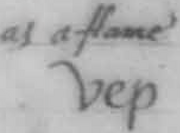 as a flame
Vep